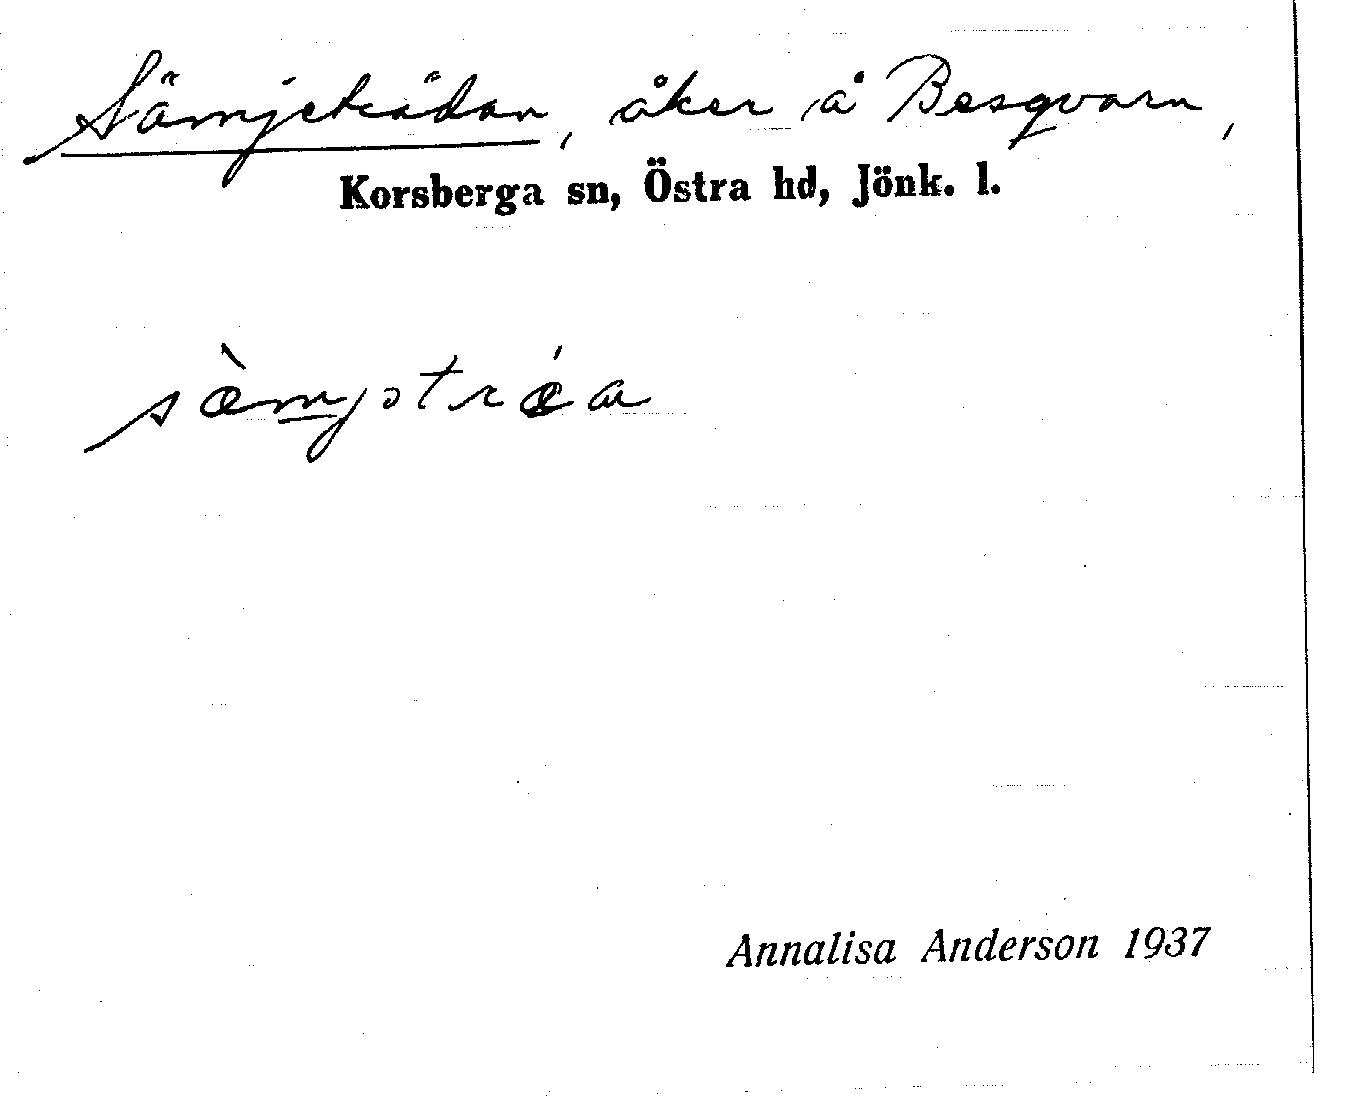 Sämjeträdan, åker å Besqvarn,
Korsberga sn, Östra hd, Jönk. l.
sæ̀mjɔtrǽa
Annalisa Anderson 1937